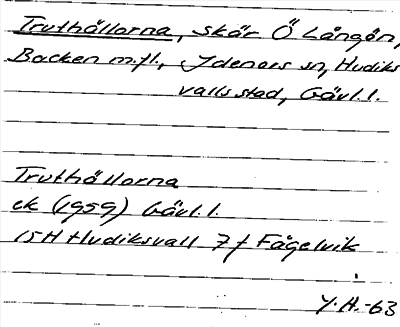 Truthällorna, skär Ö Långön,
Backen m.fl., Idenors sn, Hudiks
valls stad, Gävl.l.
Truthällorna
ek (1959) Gävl.l.
15H Hudiksvall 7f Fågelvik
Y.H.-63